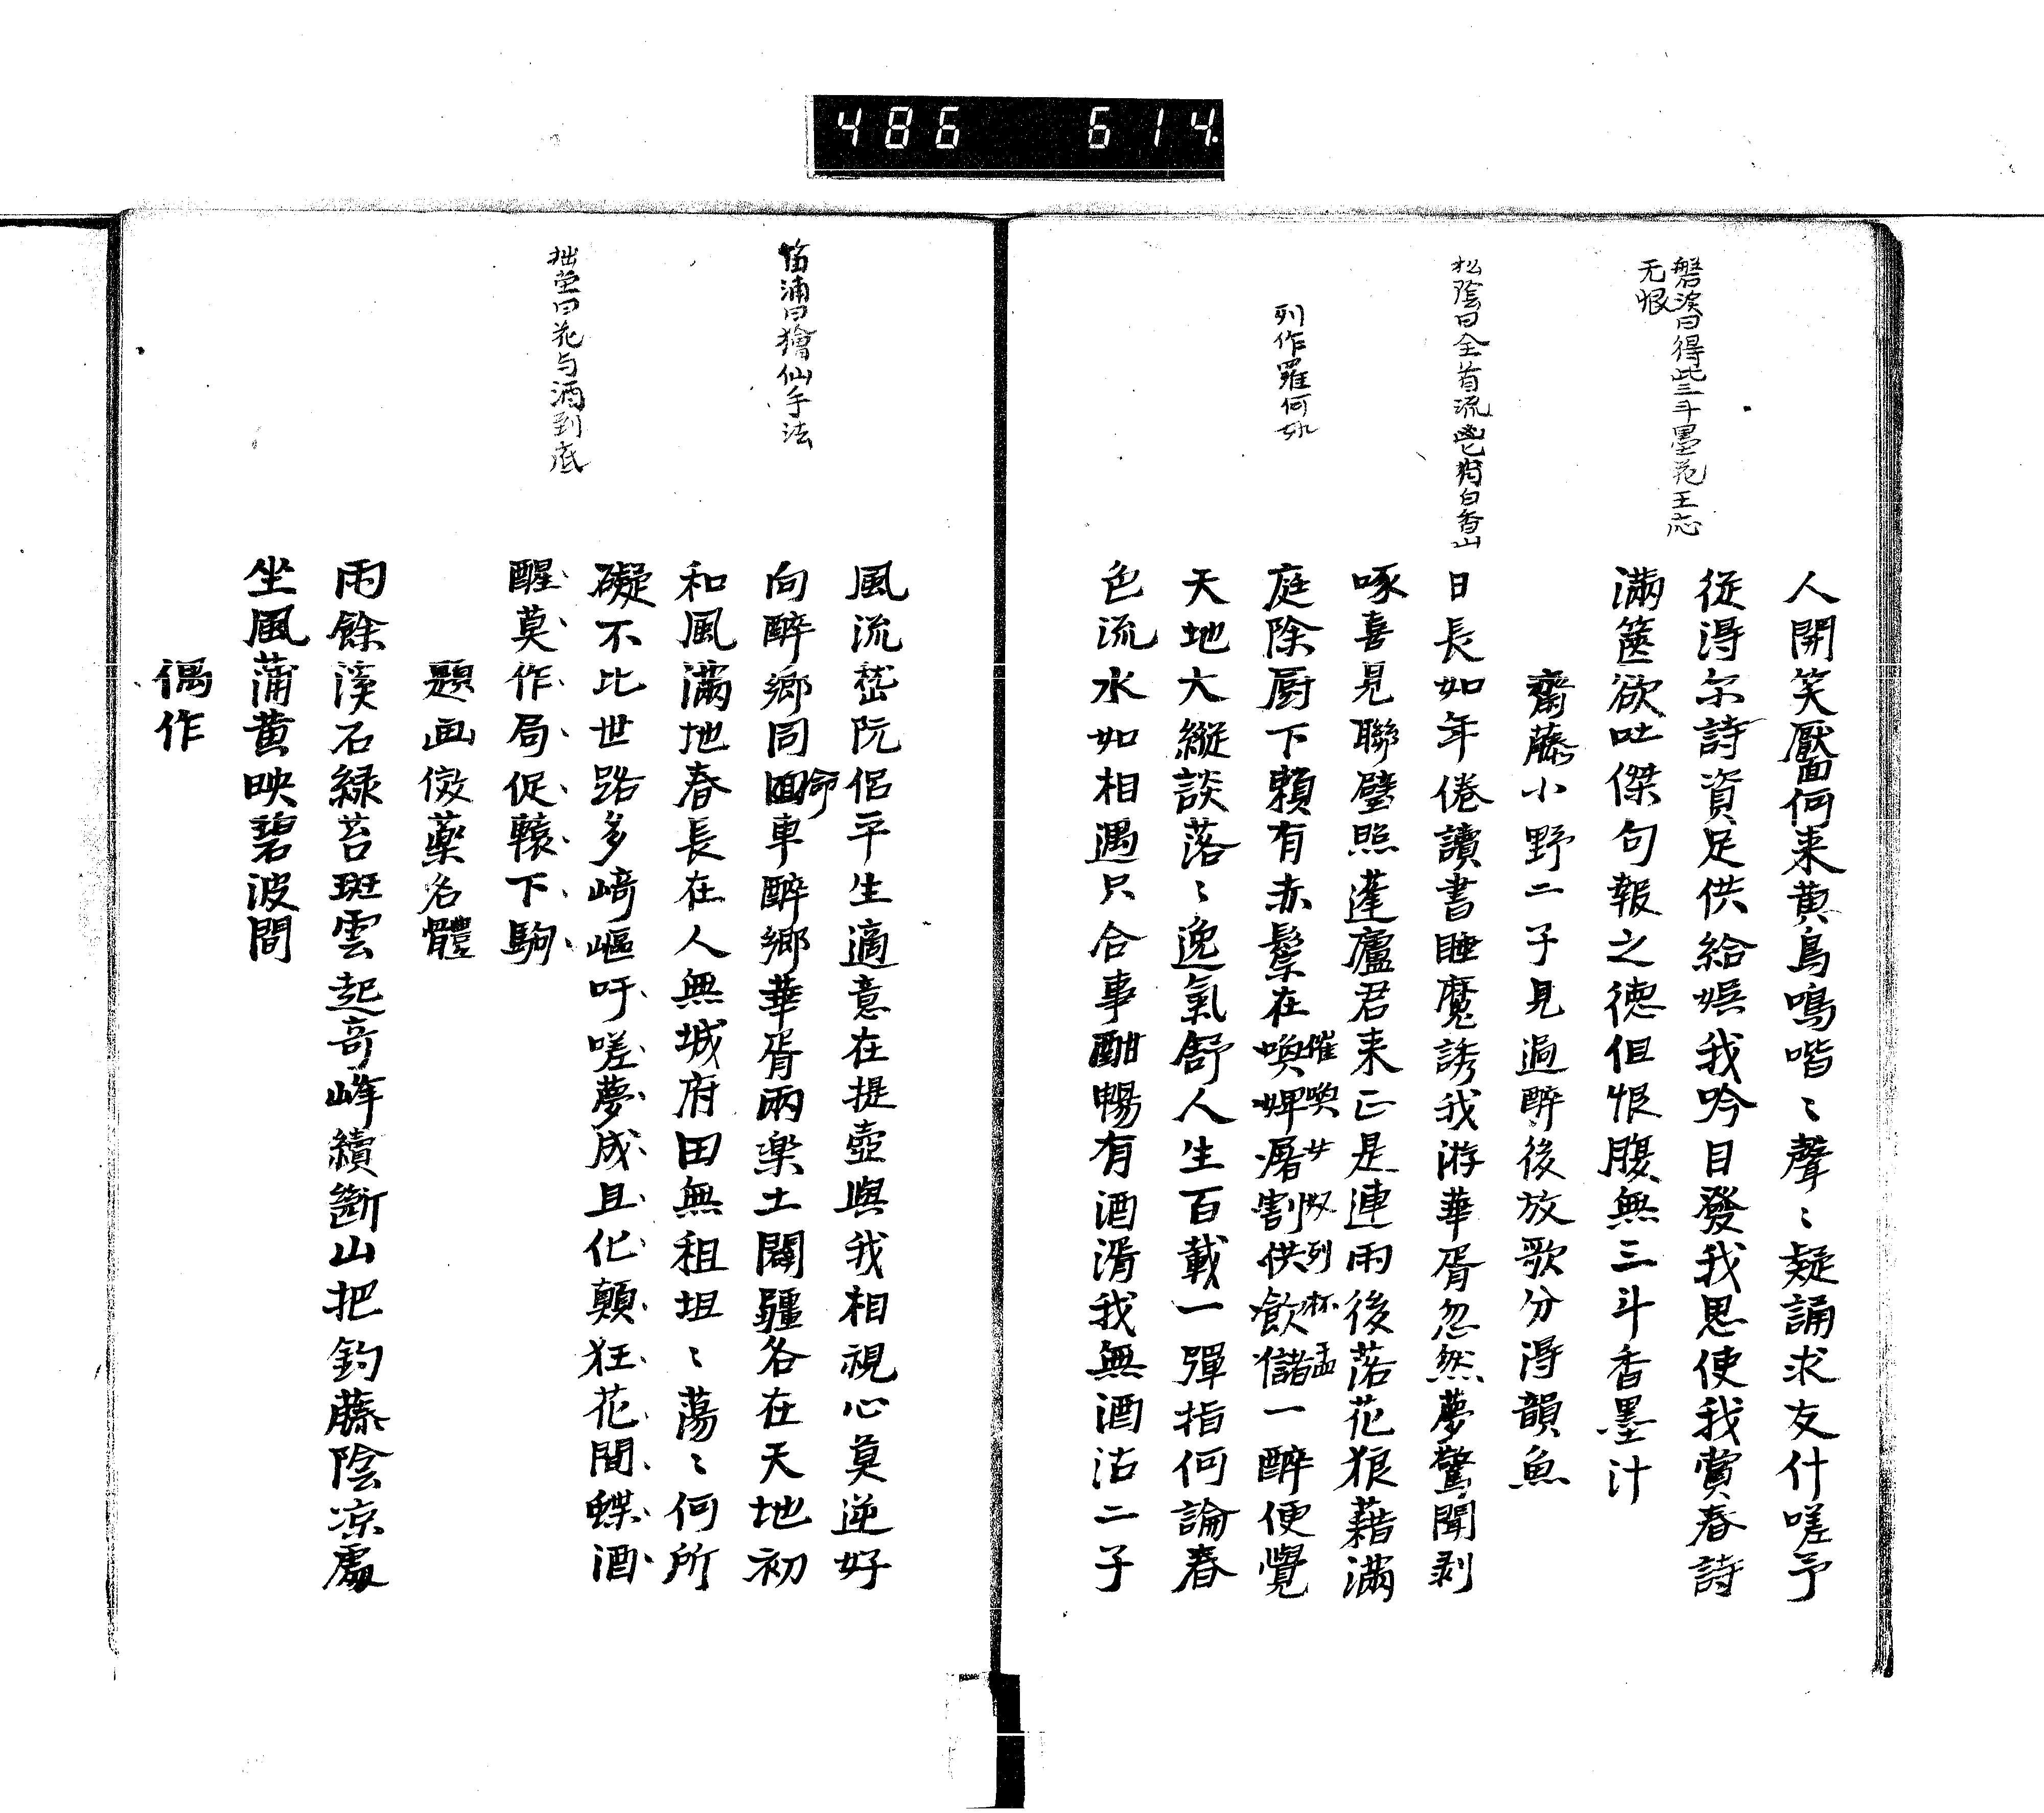 486 614
磐溪曰得此三斗墨花王応
无恨
松陰曰全首流邕猶白香山
列作羅何如
人開笑靨何来黄鳥鳴喈〻聲〻疑誦求友什嗟予
従得尓詩資足供給娯我吟目發我思使我賞春詩
満篋欲吐傑句報之徳但恨腹無三斗香墨汁
齋藤小野二子見過酔後放歌分得韻魚
日長如年倦讀書睡魔誘我游華胥忽然夢驚聞剥
啄喜見聯璧照蓬廬君来正是連雨後落花狼藉満
庭除厨下頼有赤鬃在喚婢屠割供飲儲一酔便覺
催喚女奴列杯盂
天地大縦談落〻逸氣舒人生百載一彈指何論春
色流水如相遇只合事酣暢有酒湑我無酒沽二子
笛浦曰獪仙手法
拙堂曰花与酒到底
風流嵇阮侶平生適意在提壺與我相視心莫逆好
向酔郷同回車酔郷華胥兩楽土闢疆各在天地初
命
和風満地春長在人無城府田無租坦〻蕩〻何所
礙不比世路多﨑嶇吁嗟夢成且化顛狂花間蝶酒
醒莫作局促轅下駒
題画傚薬名體
雨餘溪石緑苔斑雲起奇峰續斷山把釣藤陰凉處
坐風蒲黄映碧波間
偶作